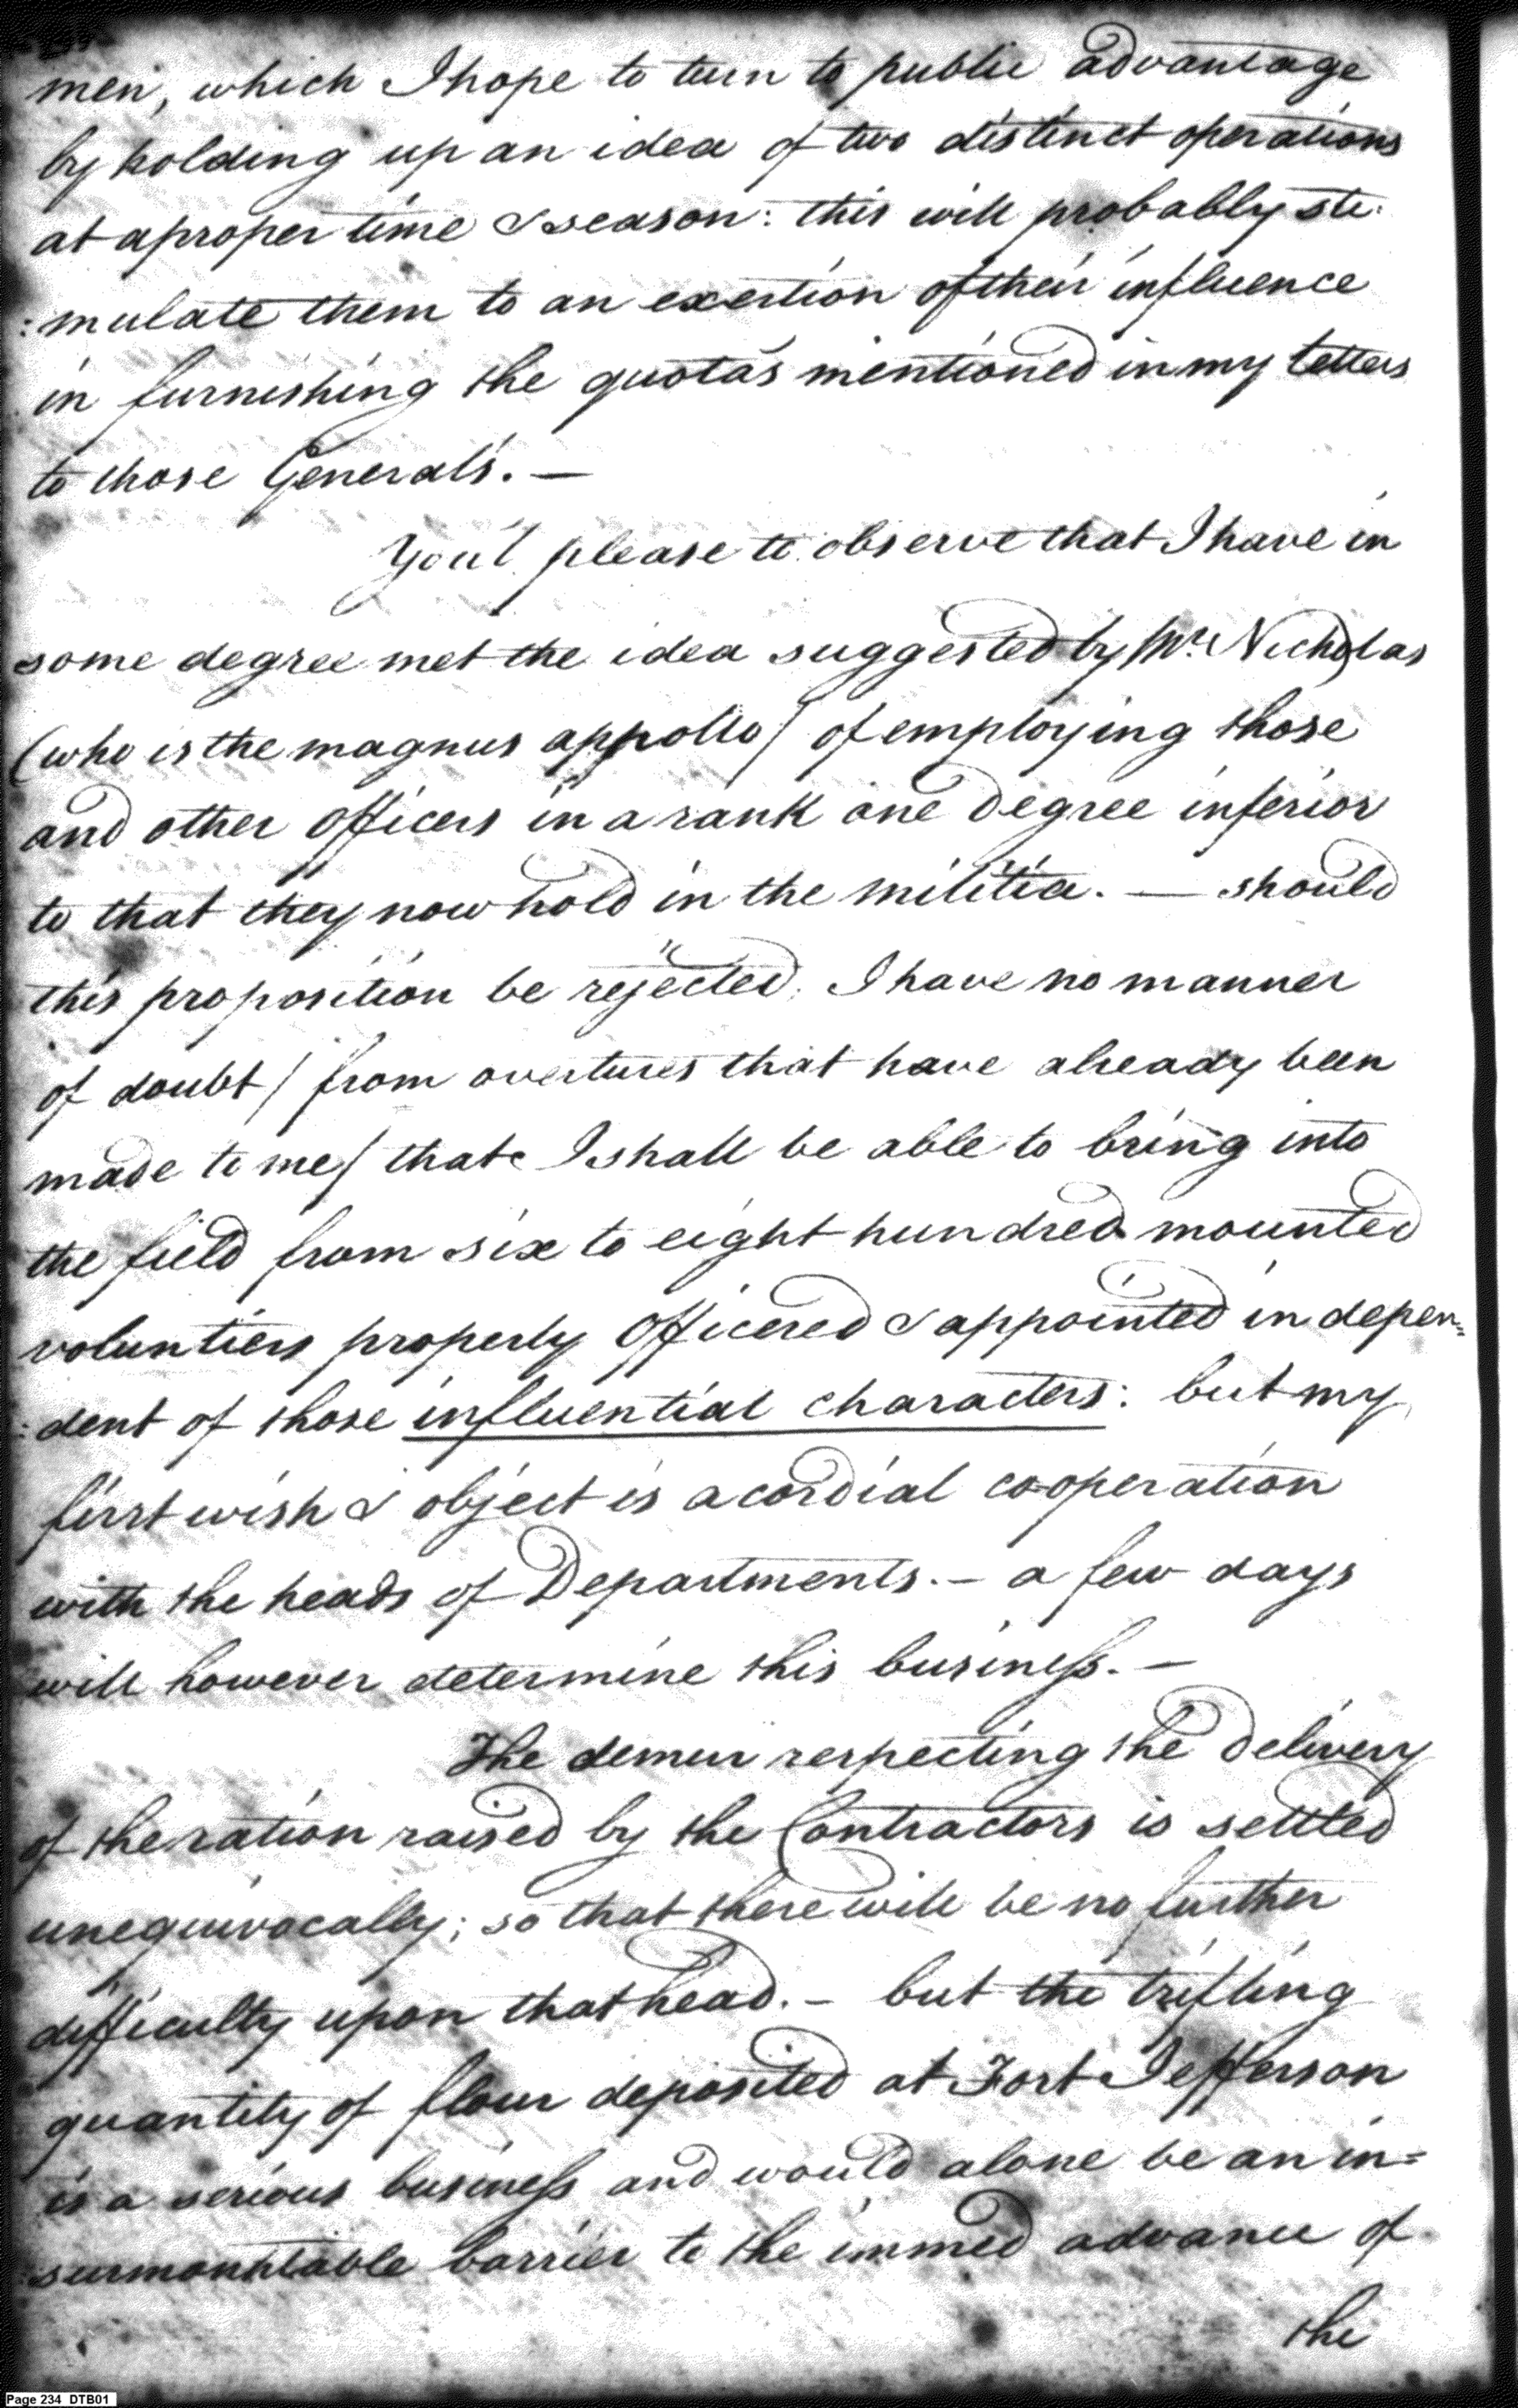 men, which I hope to turn to public advantage
by holding up an idea of two distinct operations
at a proper time & season: this will probably sti:
:mulate them to an exertion of their influence
in furnishing the quotas mentioned in my letters
to those Generals. —
You'l please to observe that I have in
some degree met the idea suggested by Mr. Nicholas
(who is the magnus appollo) of employing those
and other Officers in a rank one degree inferior
to that they now hold in the militia. — should
this proposition be rejected, I have no manner
of doubt / from overtures that have already been
made to me / that I shall be able to bring into
the field from six to eight hundred mounted
voluntiers properly Officered & appointed indepen=
:dent of those influential characters: but my
first wish & object is a cordial co-operation
with the heads of Departments. — a few days
will however determine this business. —
The demur respecting the delivery
of the ration raised by the Contractors is settled
unequivocally; so that there will be no further
difficulty upon that head. — but the trifling
quantity of flour deposited at Fort Jefferson
is a serious business and would alone be an in=
:surmountable barrier to the immed advance of
the
Page 234 DTB01